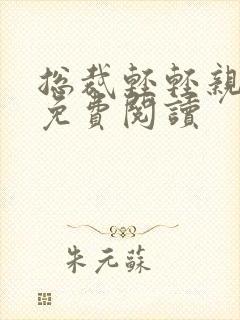 总裁輕輕親
免費閱讀
朱元蘇